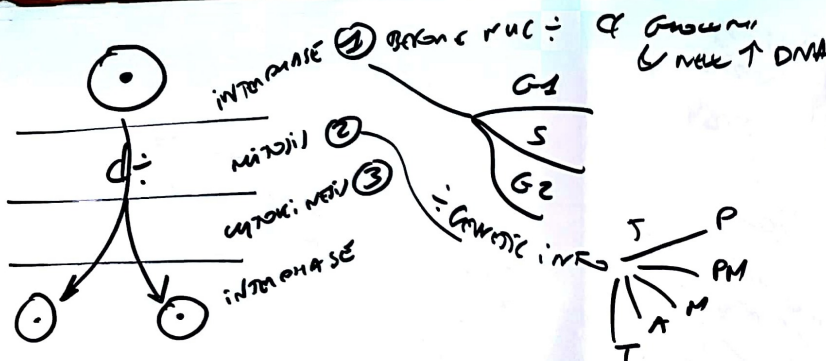 INTERPHASE ① BEFORE NUC ÷ & GROWTH
↳ NEW ↑ DNA
G1
S
G2
d÷
MITOSIS ②
CYTOKINESIS ③
INTERPHASE
÷ GENETIC INFO
5
P
PM
M
A
T